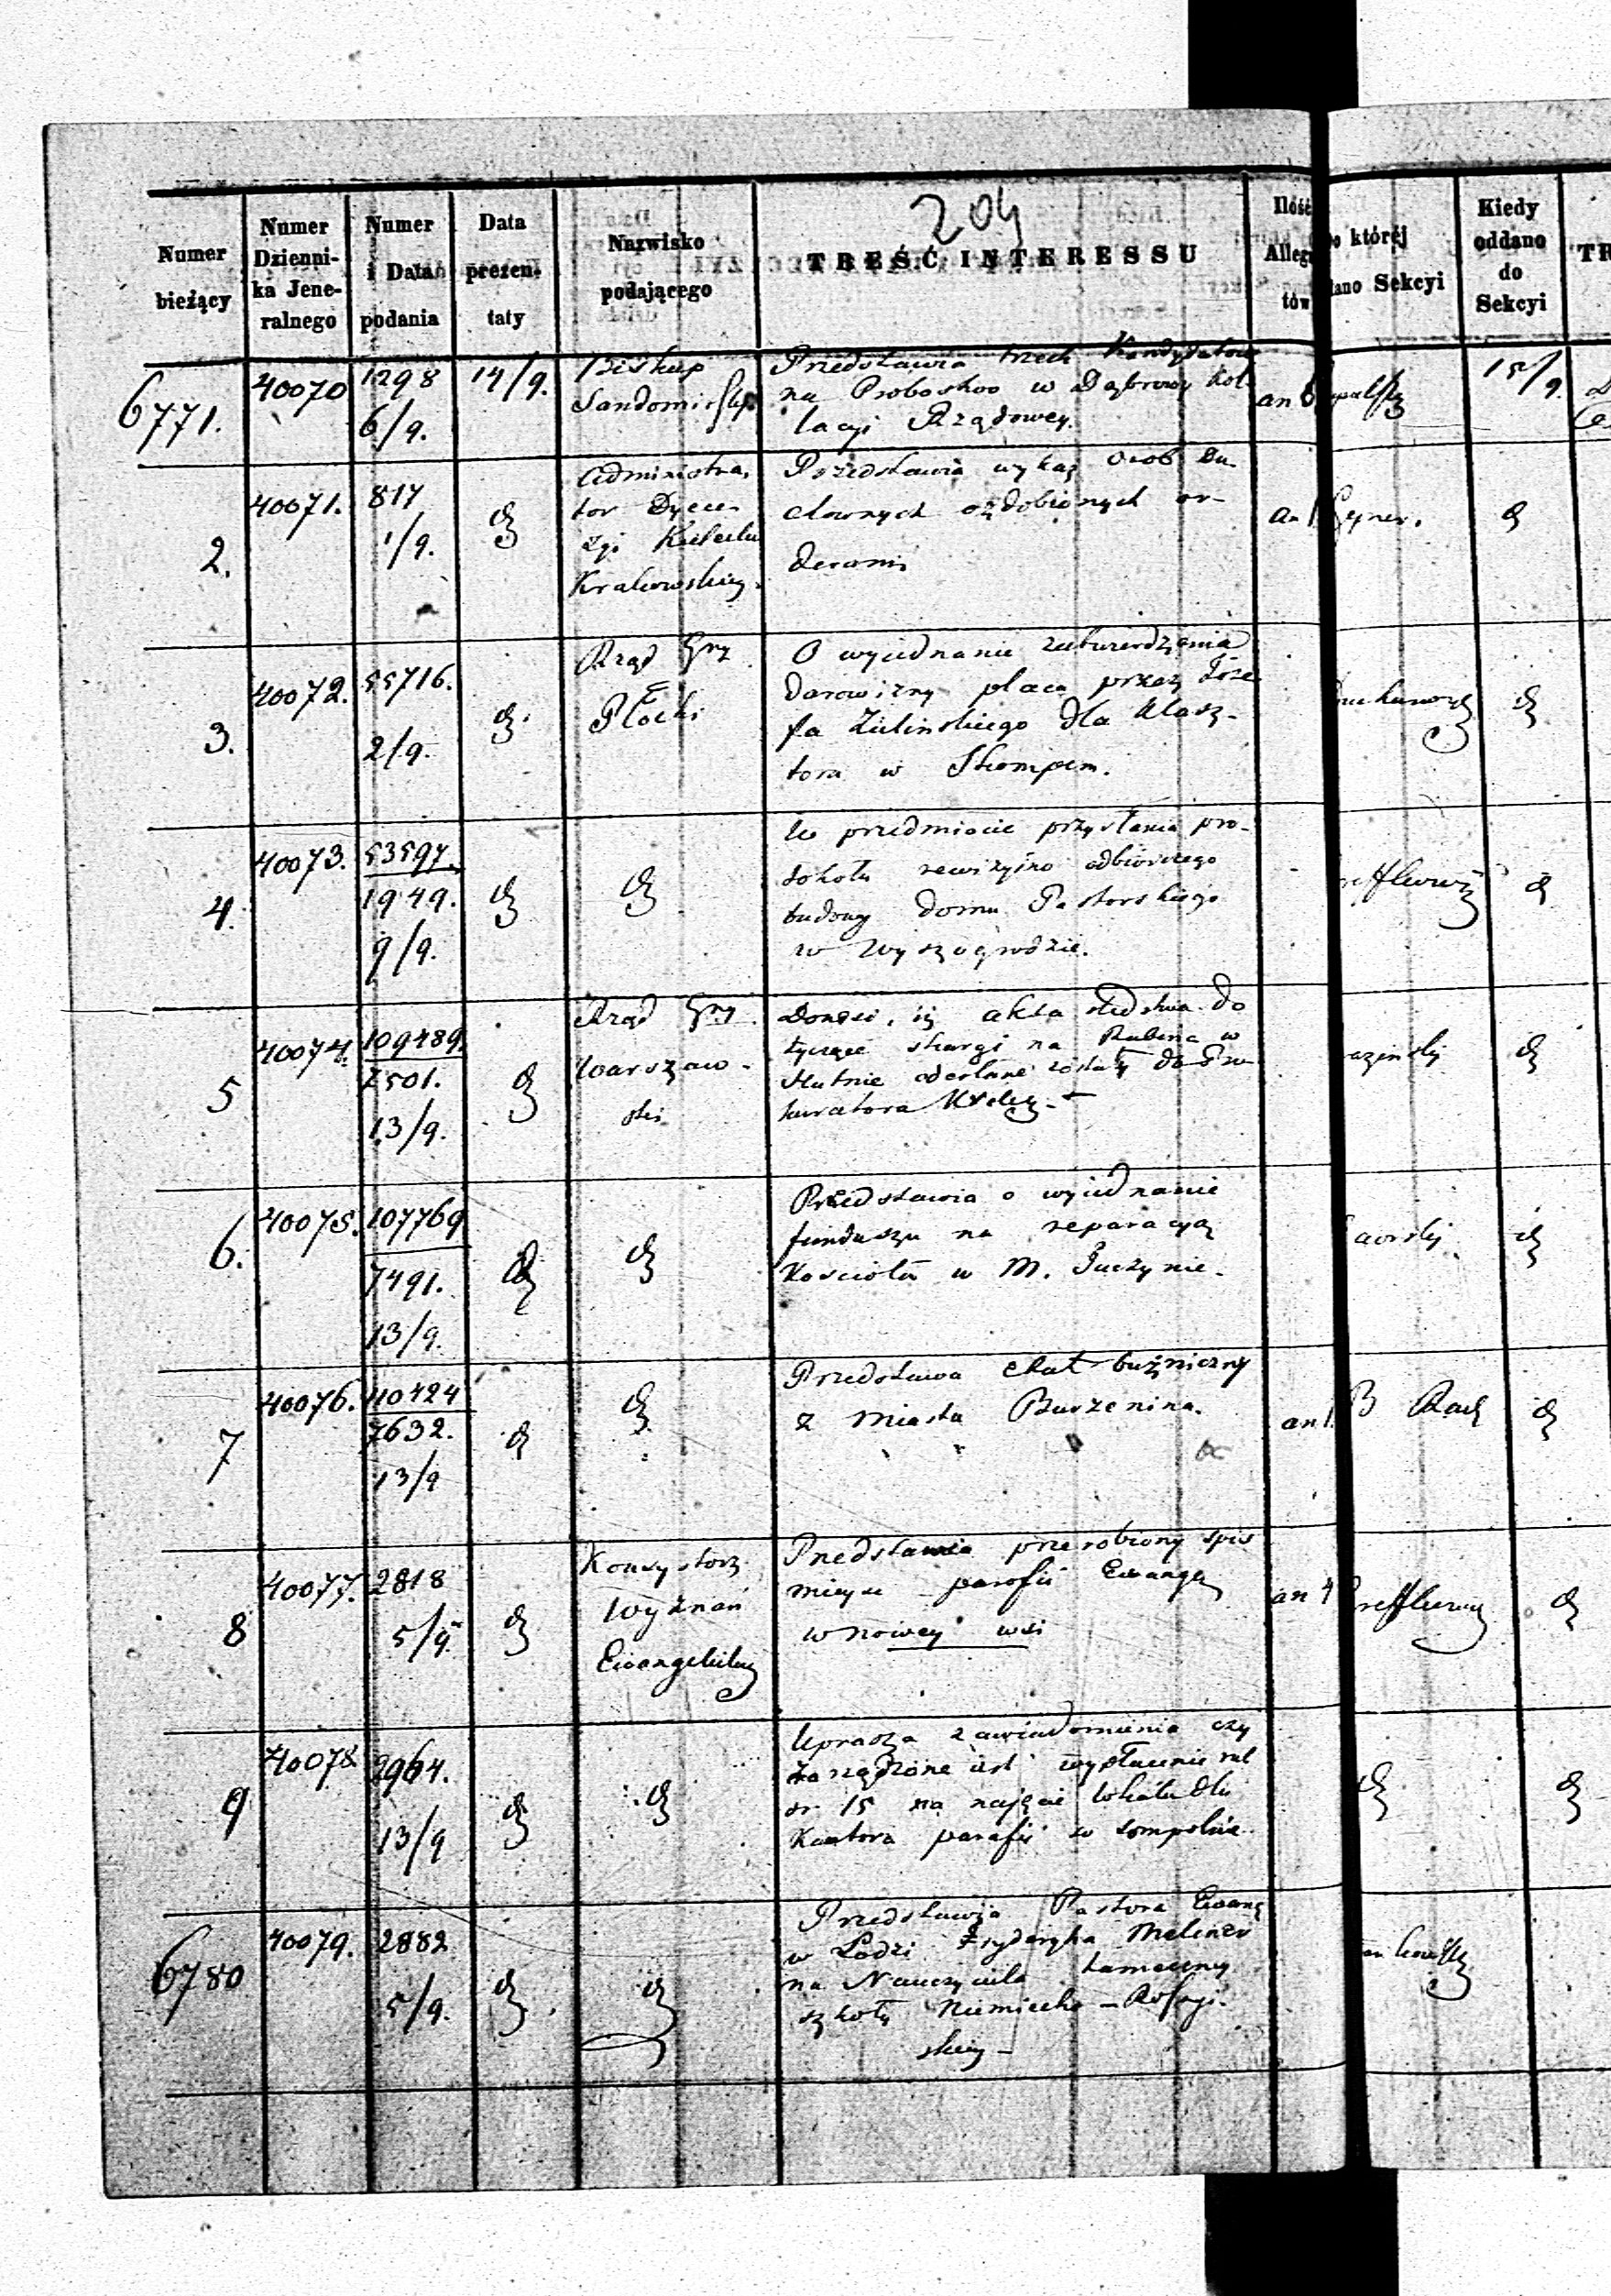 204
Numer bieżący
Numer Dzienni- ka Jene- ralnego
Numer i Data podania
Data prezen- taty
Nazwisko podającego
TREŚĆ INTERESSU
Ilość Allega tów
o któréj
dano Sekcyi
Kiedy oddano do Sekcyi
TR
6771.
40070
1298
6/9.
14/9.
Biskup
Sandomierski
Przedstawia trzech Kandydatów
na Probostwo w Dąbrowy Kol-
lacyi Rządowey.
an 6
15/9.
2.
40071.
817
1/9.
Administra-
tor Dyece-
zyi Kielecko
Krakowskiey.
Przedstawia wykaz osob Du-
chownych ozdobionych or-
derami
an 1
3.
40072.
55716.
2/9.
Rząd Gny
Płocki
O wyiednanie zatwierdzenia
darowizny placu przez Józe-
fa Zielinskiego dla Klasz-
toru w Skompem.
4.
40073.
53597.
1949.
9/9.
W przedmiocie przysłania pro-
tokołu rewizyino odbiorczego
budowy domu Pastorskiego
w Wyszogrodzie.
5
40074.
109489.
7501.
13/9.
Rząd Gny
Warszaw-
ski
Donosi, iż akta śledztwa do
tyczące skargi na Rabina w
Kutnie odesłane zostały do Pro
kuratora
6.
40075.
107769
7491.
13/9.
Przedstawia o wyiednanie
funduszu na reparacyą
Kościoła w M.
7
40076.
110424
7632.
13/9
Przedstawia etat bużniczny
z Miasta Burzenina.
an 1.
8
40077.
2818
5/9.
Konsystorz
Wyznań
Ewangelickich
Przedstawia przerobiony spis
mieysc parafii Ewangel
w nowey wsi
an 4
9
40078
2964.
13/9
Uprasza zawiadomienia czy
zarządzone iest wypłacenie rub
sr 15 na najęcie lokalu dla
Kantora parafii w Sompolnie.
6780
40079.
2882
5/9.
Przedstawia Pastora Ewang
w Łodzi Fryderyka
na Nauczyciela tameczney
szkoły Niemiecko – Rossyi-
skiey –